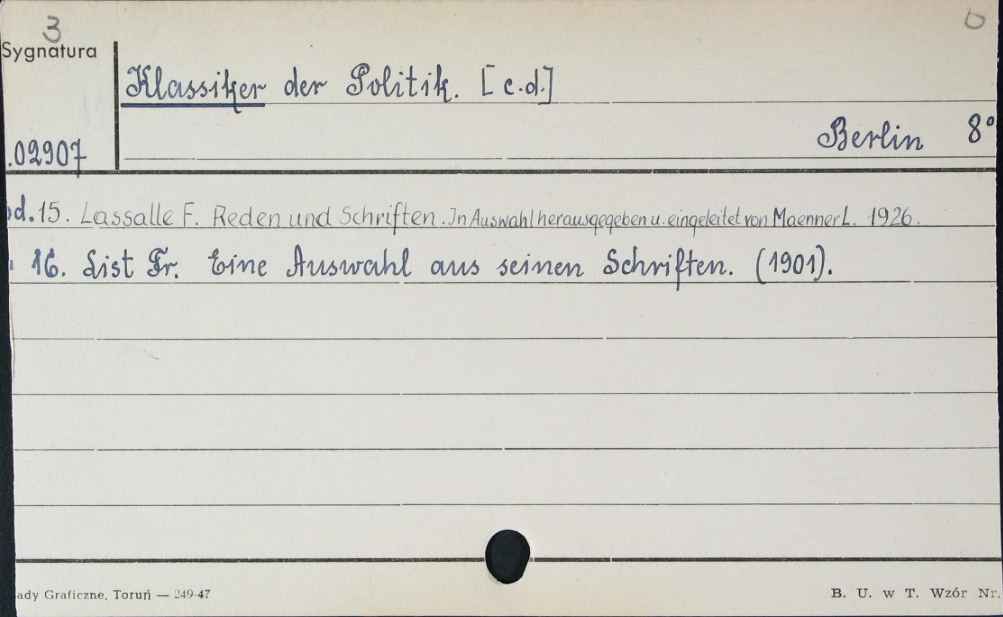 3
Sygnatura
Klassiker der Politik. [c.d.]
Berlin 8°
.02907
d. 15. Lassalle F. Reden und Schriften. In Auswahl herausgegeben u. eingeleitet von Maenner L. 1926.
16. List Fr. Eine Auswahl aus seinen Schriften. (1901).
ady Graficzne, Toruń — 249-47
B. U. w T. Wzór Nr.